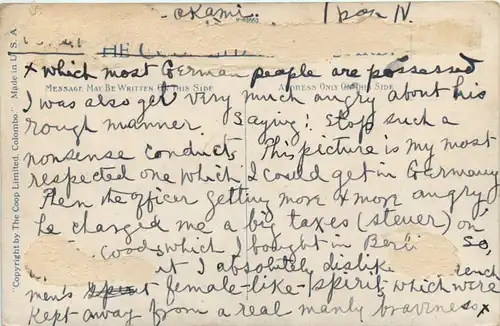 -okami-
THE COOP
x which most German people are possessed
MESSAGE MAY BE WRITTEN ON THIS SIDE
ADDRESS ONLY ON THIS SIDE
I was also get very much angry about his
rough manner. Saying: Stop such a
nonsense conducts. This picture is my most
respected one which I could get in Germany
Then the officer getting more & more angry
he charged me a big taxes (steuer) on
goods, which I bought in Berli So,
it I absolutely dislike ench
men's female-like-spirit, which were
kept away from a real manly braviness x
Copyright by The Coop Limited, Colombo Made in U.S.A